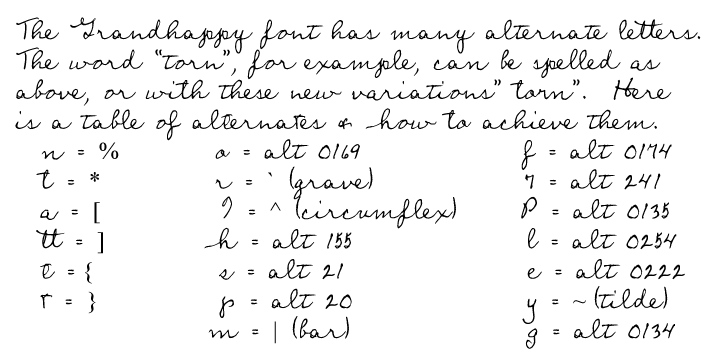 The Grandhappy font has many alternate letters.
The word "torn", for example, can be spelled as
above, or with these new variations" torn".  Here
is a table of alternates & how to achieve them.
n = % o = alt 0169 f = alt 0174
t = * r = ` (grave) 7 = alt 241
a = [ ? = ^ (circumflex) P = alt 0135
tt = ] h = alt 155 l = alt 0254
t = { s = alt 21 e = alt 0222
r = } p = alt 20 y = ~ (tilde)
m = | (bar) g = alt 0134